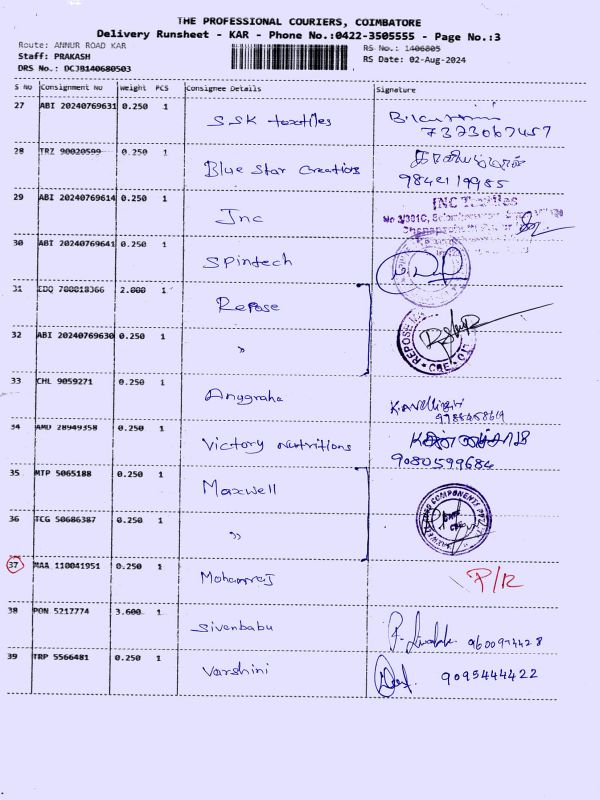 THE PROFESSIONAL COURIERS, COIMBATORE
Delivery Runsheet - KAR - Phone No.:0422-3505555 - Page No.:3
Route: ANNUR ROAD KAR
RS No.: 1406805
Staff: PRAKASH
RS Date: 02-Aug-2024
DRS No.: DCJB140680503
S No Consignment No Weight PCS Consignee Details Signature
27 ABI 20240769631 0.250 1 SSK textiles
7373067457
28 TRZ 90020599 0.250 1 Blue Star Creations
9842119985
29 ABI 20240769614 0.250 1 Jnc
INC Textiles
30 ABI 20240769641 0.250 1 Spintech
31 EDQ 700018366 2.000 1 Repose
32 ABI 20240769630 0.250 1 "
REPOSE
33 CHL 9059271 0.250 1 Anygraha
34 AMD 28949358 0.250 1 Victory nutritions
9080599684
35 MTP 5065188 0.250 1 Maxwell
36 TCG 50686387 0.250 1 "
COMPONENTS
37 MAA 110041951 0.250 1 Mohanraj P/R
38 PON 5217774 3.600 1 Sivenbabu
39 TRP 5566481 0.250 1 Varshini 9095444422